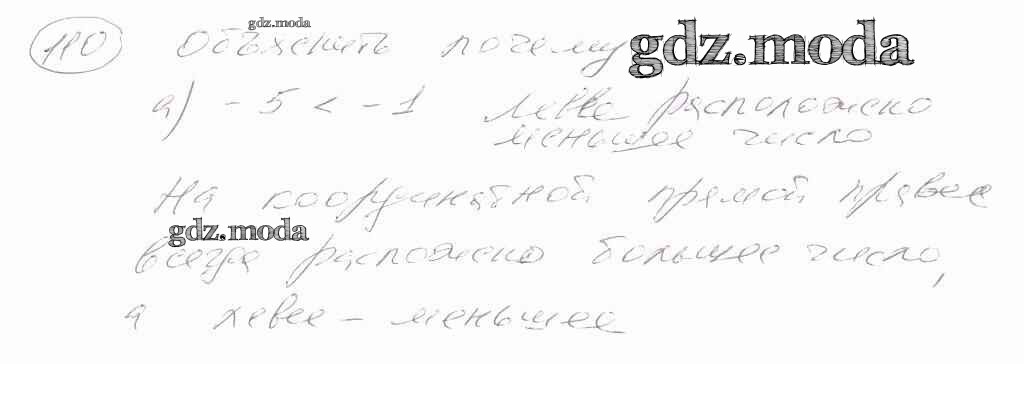 gdz.moda
110 Объяснить почему gdz.moda
а) - 5 < - 1 левее расположено
меньшее число
На координатной прямой правее
gdz.moda
всегда расположено большее число,
а левее - меньшее